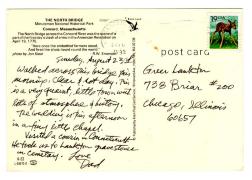 THE NORTH BRIDGE
Minuteman National Historical Park
Concord, Massachusetts
The North Bridge across the Concord River was the scene of
on April 19, 1775.
"Here once the embattled farmers stood
And fired the shots heard round the world."
Sunday, August 23rd
Walked across this bridge this
morning. Clear & hot day. This
is a very quaint little town with
lots of atmosphere & history.
The wedding is this afternoon
in a tiny little chapel.
Visited a cousin in Connecticut
who took us to Lankton gravestones
in cemetery. Love
Dad
19 USA
post card
Greer Lankton
738 Briar #200
Chicago, Illinois
60657